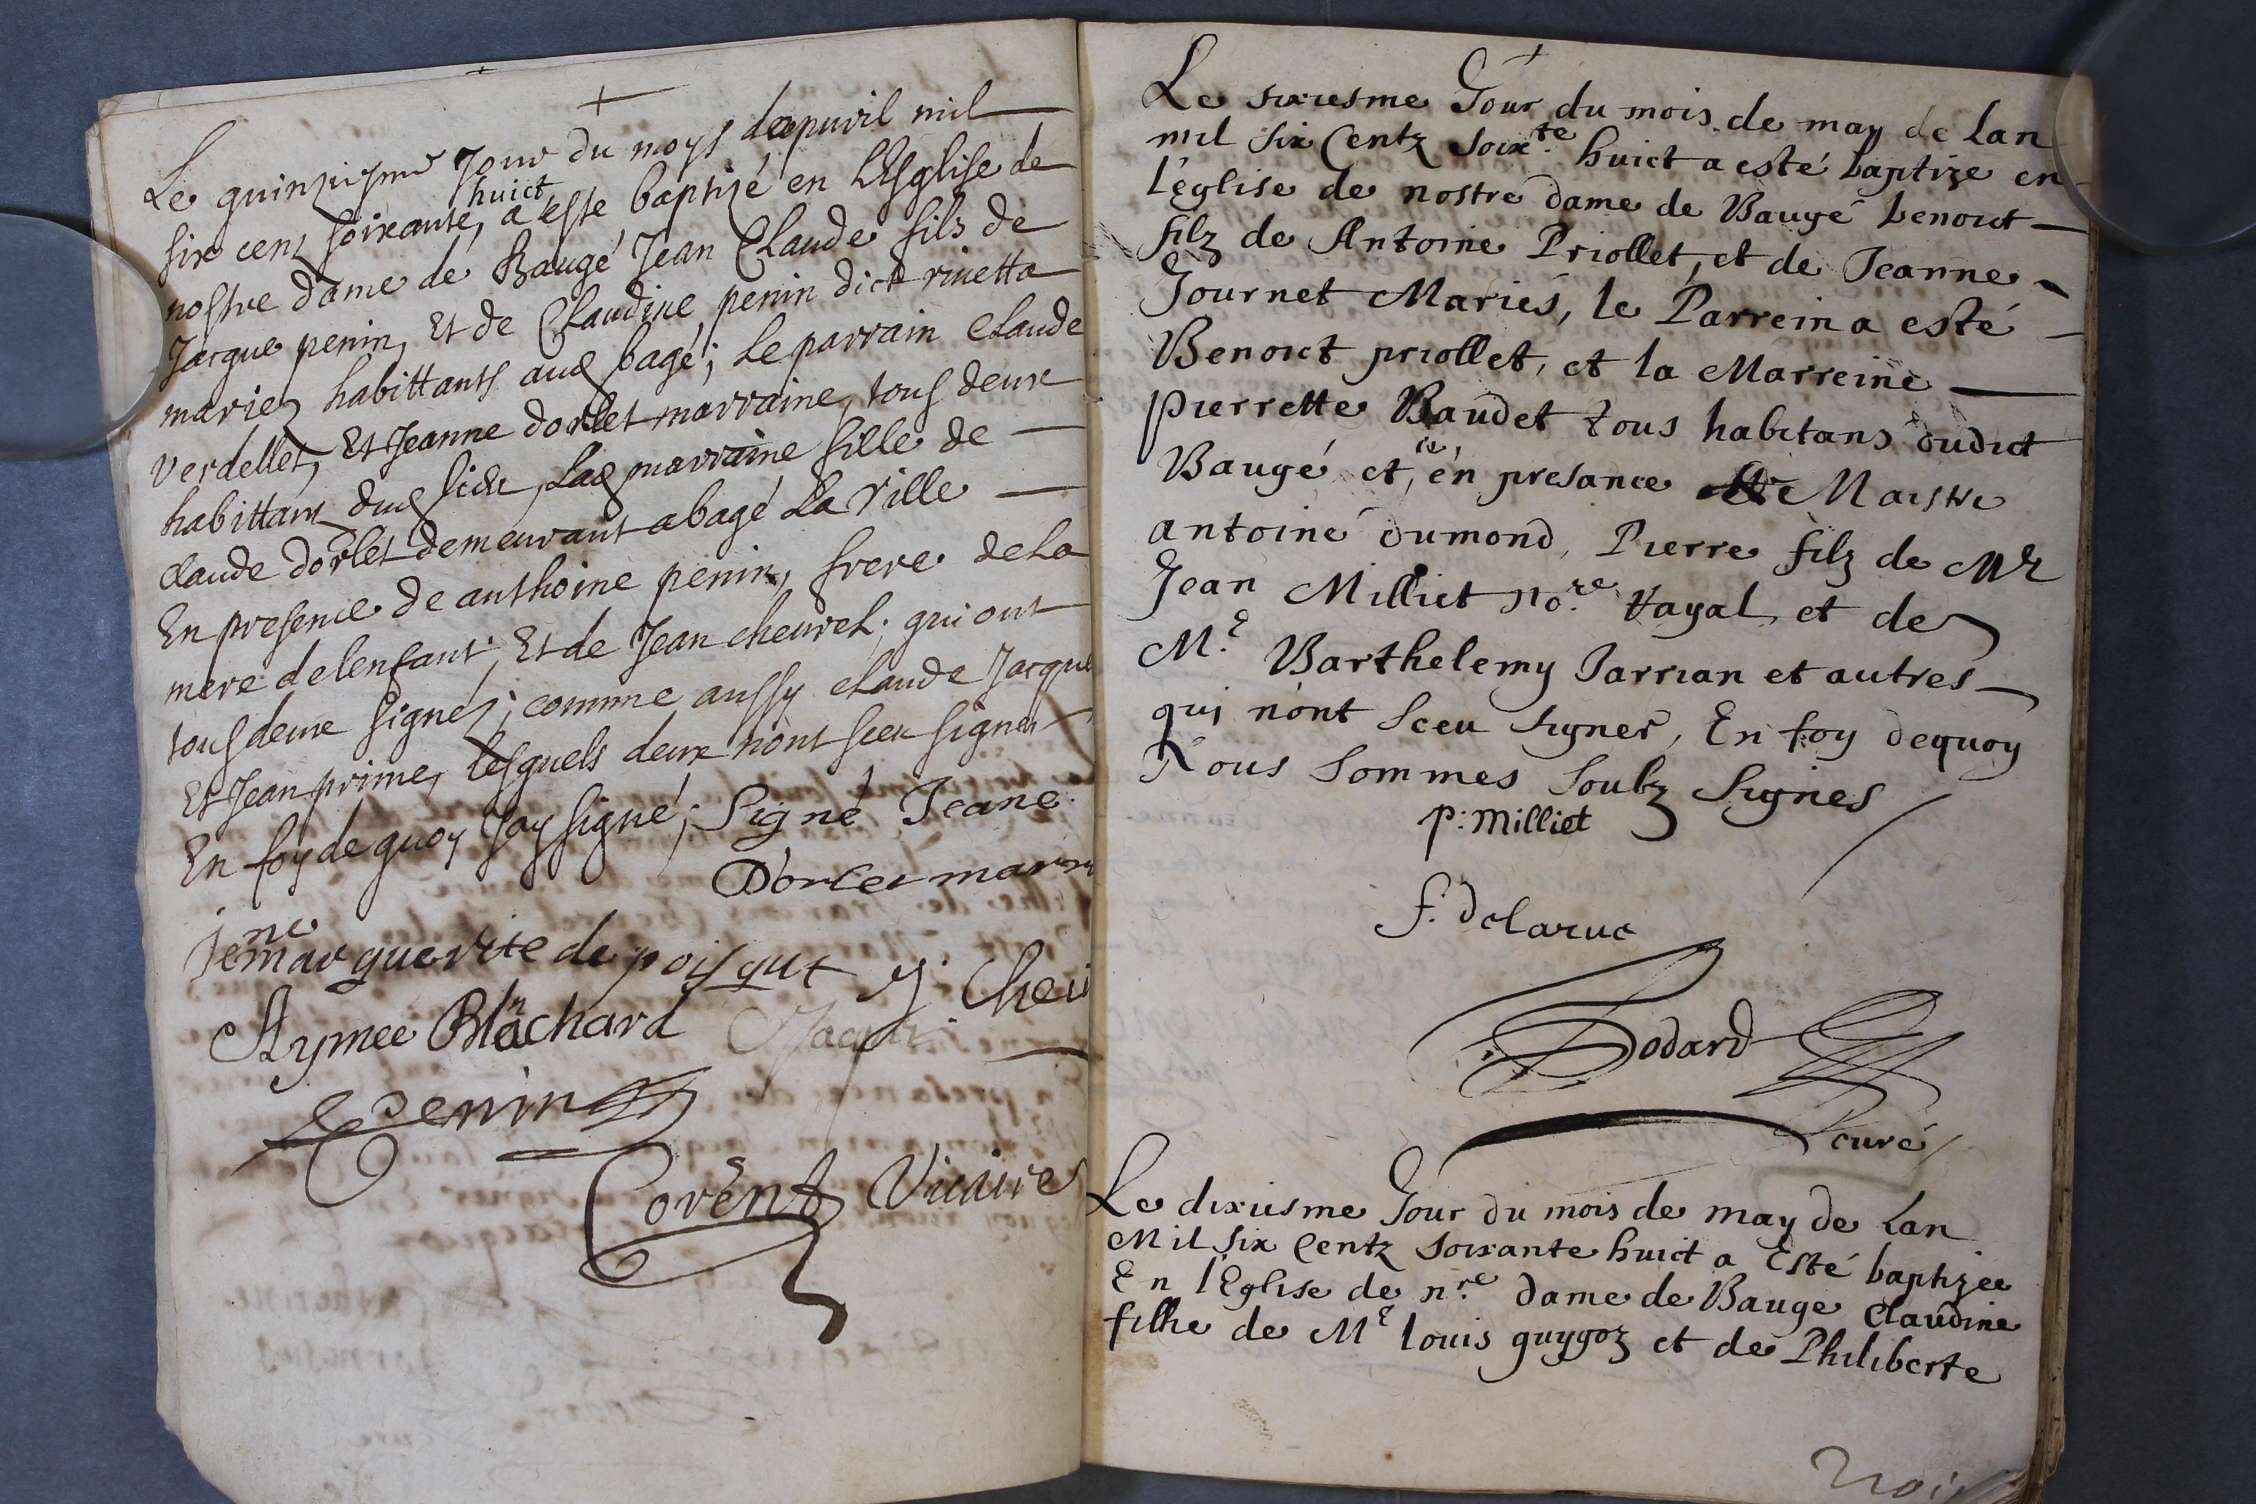 Le quinziesme Jour du moys dapuril mil
six cent soixante, huict a este baptizé en LEsglise de
nostre dame de Baugé Jean Claude fils de
Jacque penin, Et de Claudine penin dict rivetta
mariez habittants aud bagé; Le parrain Claude
verdellet, Et Jeanne dorlet marraine, tous deux
habittans dud lieu, Lad marraine fille de
claude dorlet demeurant a bagé La Ville
En presence de anthoine penin, frere de La
mere de lenfant, Et de Jean chevrel; qui ont
tous deux signés; comme aussy claude Jacque
Et Jean prime, lesquels deux nont sceu signer
En foy de quoy Jay signé; Signé Jeane
Dorlet marra
ine
Jemarguerite de
Aymee Blanchard J. Chev
Penin
Corent Vicaire
Le sixiesme Jour du mois de may de Lan
mil six Centz soixte. huict a esté baptize en
l'église de nostre dame de Baugé benoict
filz de Antoine Priollet, et de Jeanne
Journet Mariés, le Parrein a esté
Benoict priollet, et la Marreine
pierrette Baudet tous habitans dudict
Baugé et, ce, en presance de Maistre
antoine dumond, Pierre filz de Mre
Jean Milliet nore. Rayal et de
Me. Barthelemy Jarrian et autres
qui nont sceu signer, En foy dequoy
Nous Sommes Soubz Signes
p: Milliet
f. delarue
Bodard
curé
Le dixiesme Jour du mois de may de Lan
Mil six Centz soixante huict a Esté baptizée
En l'Eglise de nre. dame de Bauge Claudine
fille de Me louis guygoz et de Philiberte